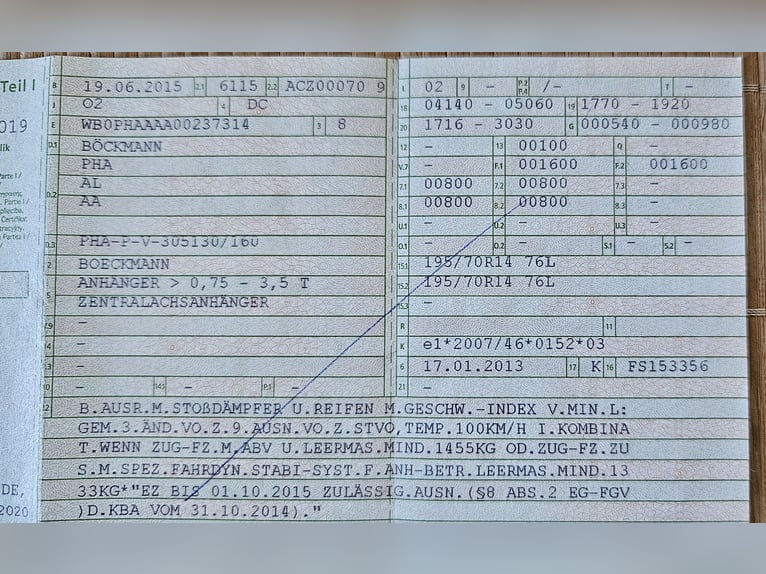 Teil I
019
lik
B 19.06.2015 2.1 6115 2.2 ACZ00070 9
J O2 4 DC
E WB0PHAAAA00237314 3 8
D.1 BÖCKMANN
PHA
D.2 AL
AA
D.3 PHA-P-V-305130/160
2 BOECKMANN
5 ANHÄNGER > 0,75 - 3,5 T
ZENTRALACHSANHÄNGER
V.9 -
14 -
P.3 -
10 - 14.1 - P.1 -
L 02 9 - P.2 P.4 -/- T -
18 04140 - 05060 19 1770 - 1920
20 1716 - 3030 G 000540 - 000980
12 - 13 00100 Q -
V.7 - F.1 001600 F.2 001600
7.1 00800 7.2 00800 7.3 -
8.1 00800 8.2 00800 8.3 -
U.1 - U.2 - U.3 -
O.1 - O.2 - S.1 - S.2 -
15.1 195/70R14 76L
15.2 195/70R14 76L
15.3 -
R 11
K e1*2007/46*0152*03
6 17.01.2013 17 K 16 FS153356
21 -
22 B.AUSR.M.STOßDÄMPFER U.REIFEN M.GESCHW.-INDEX V.MIN.L:
GEM.3.ÄND.VO.Z.9.AUSN.VO.Z.STVO,TEMP.100KM/H I.KOMBINA
T.WENN ZUG-FZ.M.ABV U.LEERMAS.MIND.1455KG OD.ZUG-FZ.ZU
S.M.SPEZ.FAHRDYN.STABI-SYST.F.ANH-BETR.LEERMAS.MIND.13
33KG*"EZ BIS 01.10.2015 ZULÄSSIG.AUSN.(§8 ABS.2 EG-FGV
)D.KBA VOM 31.10.2014)."
DE,
2020